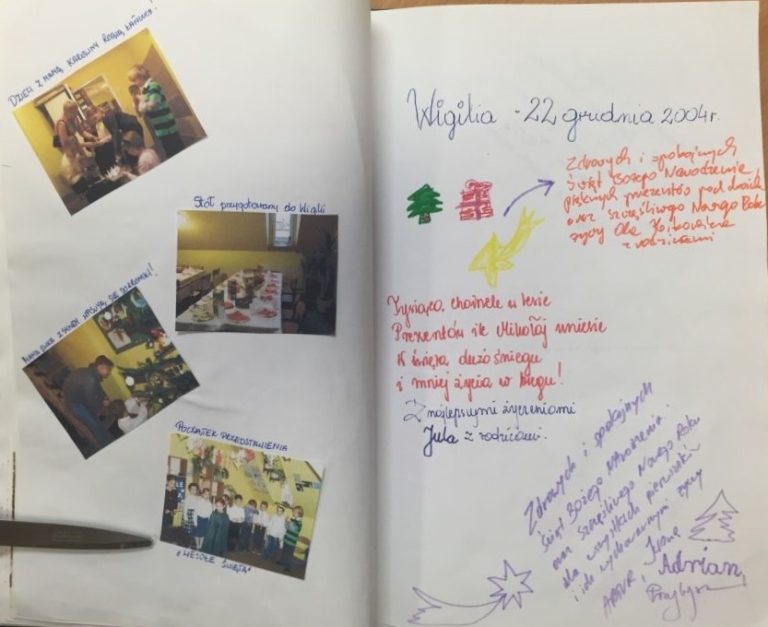 DZIEŃ Z MAMĄ KAROLINY ROBIĄ ŁAŃCUCH!
Stół przygotowany do Wigilii
CHOINKĘ!
POCZĄTEK PRZEDSTAWIENIA
„WESOŁE ŚWIĘTA"
Wigilia - 22 grudnia 2004r.
Zdrowych i spokojnych
Świąt Bożego Narodzenia,
pięknych prezentów pod choinką
oraz szczęśliwego Nowego Roku
życzy Ola
z rodzicami
Tysiąca choinek w lesie
Prezentów ile Mikołaj uniesie
K święta dużo śniegu
i mniej życia w biegu!
Z najlepszymi życzeniami
Jula z rodzicami.
Zdrowych i spokojnych
Świąt Bożego Narodzenia
oraz szczęśliwego Nowego Roku
dla wszystkich pierwszaków
i ich wychowawczyni życzy
ARTUR, Iwona
Adrian